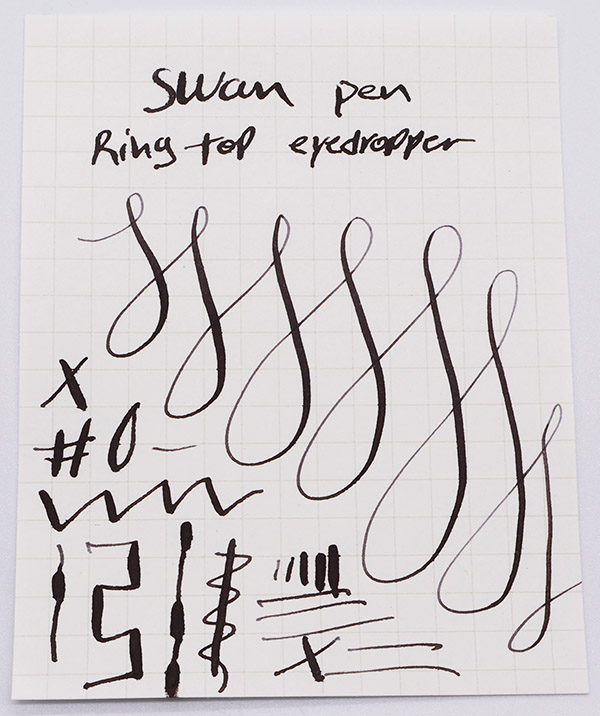 Swan pen
Ring top eyedropper
X
#0 –
X